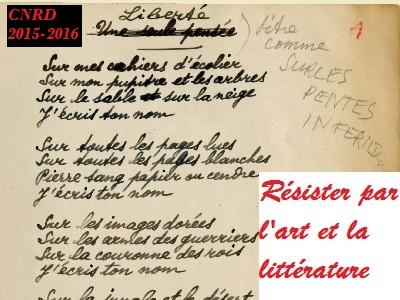 CNRD
2015-2016
Liberté
Une seule pensée
titre
comme
SUR LES
PENTES
1
Sur mes cahiers d'écolier
Sur mon pupitre et les arbres
Sur le sable et sur la neige
J'écris ton nom
Sur toutes les pages lues
Sur toutes les pages blanches
Pierre sang papier ou cendre
J'écris ton nom
Sur les images dorées
Sur les armes des guerriers
Sur la couronne des rois
J'écris ton nom
Sur la jungle et le désert
Résister par
l'art et la
littérature